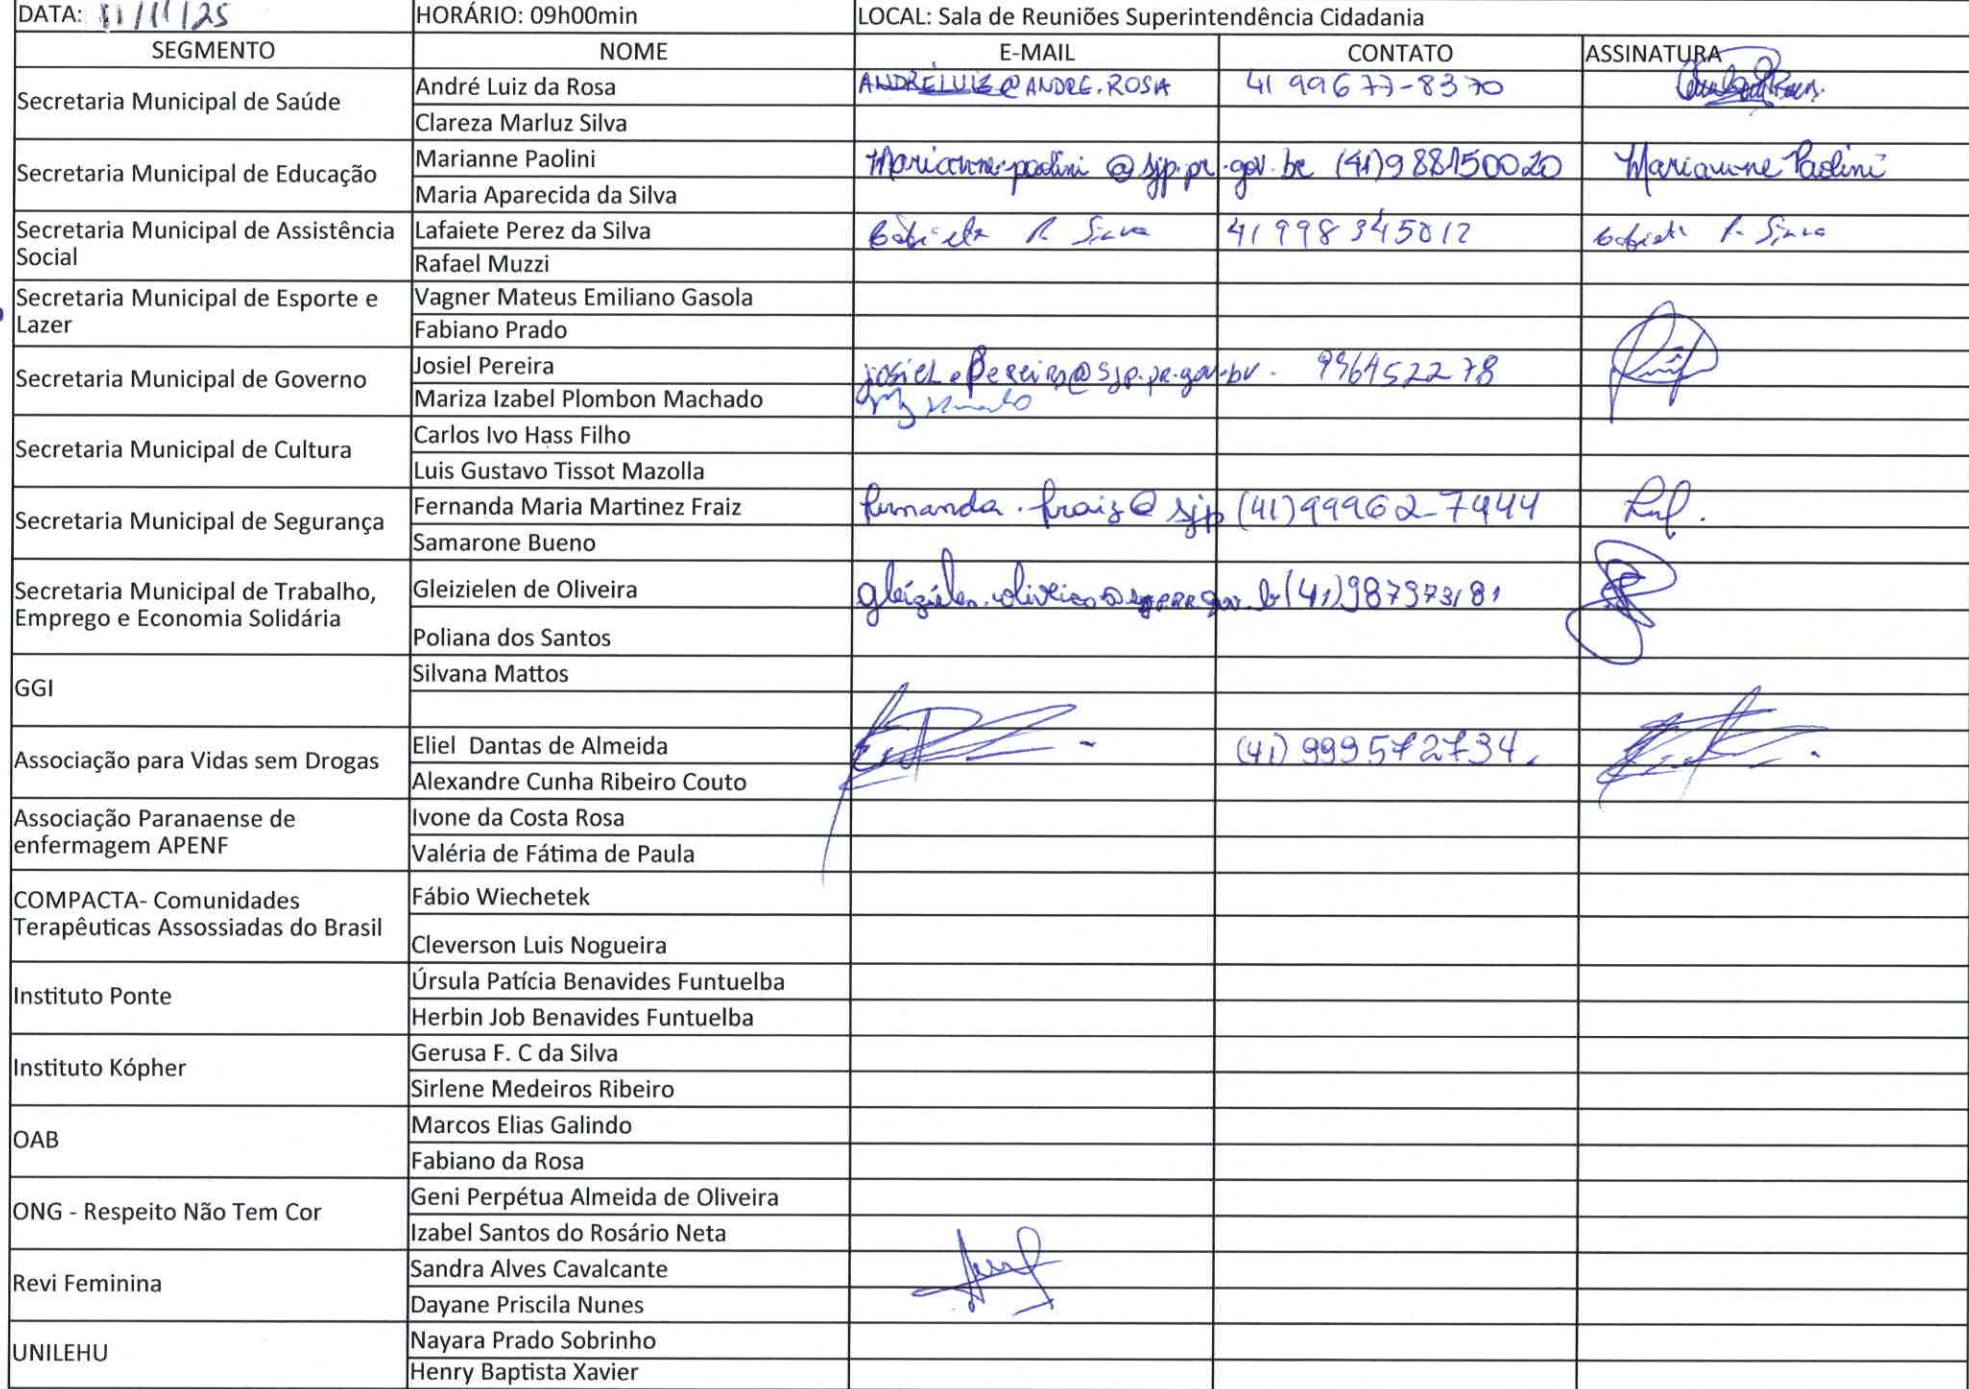 DATA: 11/11/25 HORÁRIO: 09h00min LOCAL: Sala de Reuniões Superintendência Cidadania
SEGMENTO NOME E-MAIL CONTATO ASSINATURA
Secretaria Municipal de Saúde
André Luiz da Rosa ANDRÉLUIZ@ANDRE.ROSA 41 99677-8370
Clareza Marluz Silva
Secretaria Municipal de Educação
Marianne Paolini Marianne.paolini@sjp.pr.gov.br (41)988150020 Marianne Paolini
Maria Aparecida da Silva
Secretaria Municipal de Assistência
Social
Lafaiete Perez da Silva Gabriela R. Silva 41 998345012 Gabriela R. Silva
Rafael Muzzi
Secretaria Municipal de Esporte e
Lazer
Vagner Mateus Emiliano Gasola
Fabiano Prado
Secretaria Municipal de Governo
Josiel Pereira josiel.Pereira@sjp.pr.gov.br. 996452278
Mariza Izabel Plombon Machado
Secretaria Municipal de Cultura
Carlos Ivo Hass Filho
Luis Gustavo Tissot Mazolla
Secretaria Municipal de Segurança
Fernanda Maria Martinez Fraiz fernanda.fraiz@sjp (41)99962-7444
Samarone Bueno
Secretaria Municipal de Trabalho,
Emprego e Economia Solidária
Gleizielen de Oliveira gleizielen.oliveira@sjp.pr.gov.br (41)987973181
Poliana dos Santos
GGI
Silvana Mattos
Associação para Vidas sem Drogas
Eliel Dantas de Almeida (41) 999572734.
Alexandre Cunha Ribeiro Couto
Associação Paranaense de
enfermagem APENF
Ivone da Costa Rosa
Valéria de Fátima de Paula
COMPACTA- Comunidades
Terapêuticas Assossiadas do Brasil
Fábio Wiechetek
Cleverson Luis Nogueira
Instituto Ponte
Úrsula Patícia Benavides Funtuelba
Herbin Job Benavides Funtuelba
Instituto Kópher
Gerusa F. C da Silva
Sirlene Medeiros Ribeiro
OAB
Marcos Elias Galindo
Fabiano da Rosa
ONG - Respeito Não Tem Cor
Geni Perpétua Almeida de Oliveira
Izabel Santos do Rosário Neta
Revi Feminina
Sandra Alves Cavalcante
Dayane Priscila Nunes
UNILEHU
Nayara Prado Sobrinho
Henry Baptista Xavier